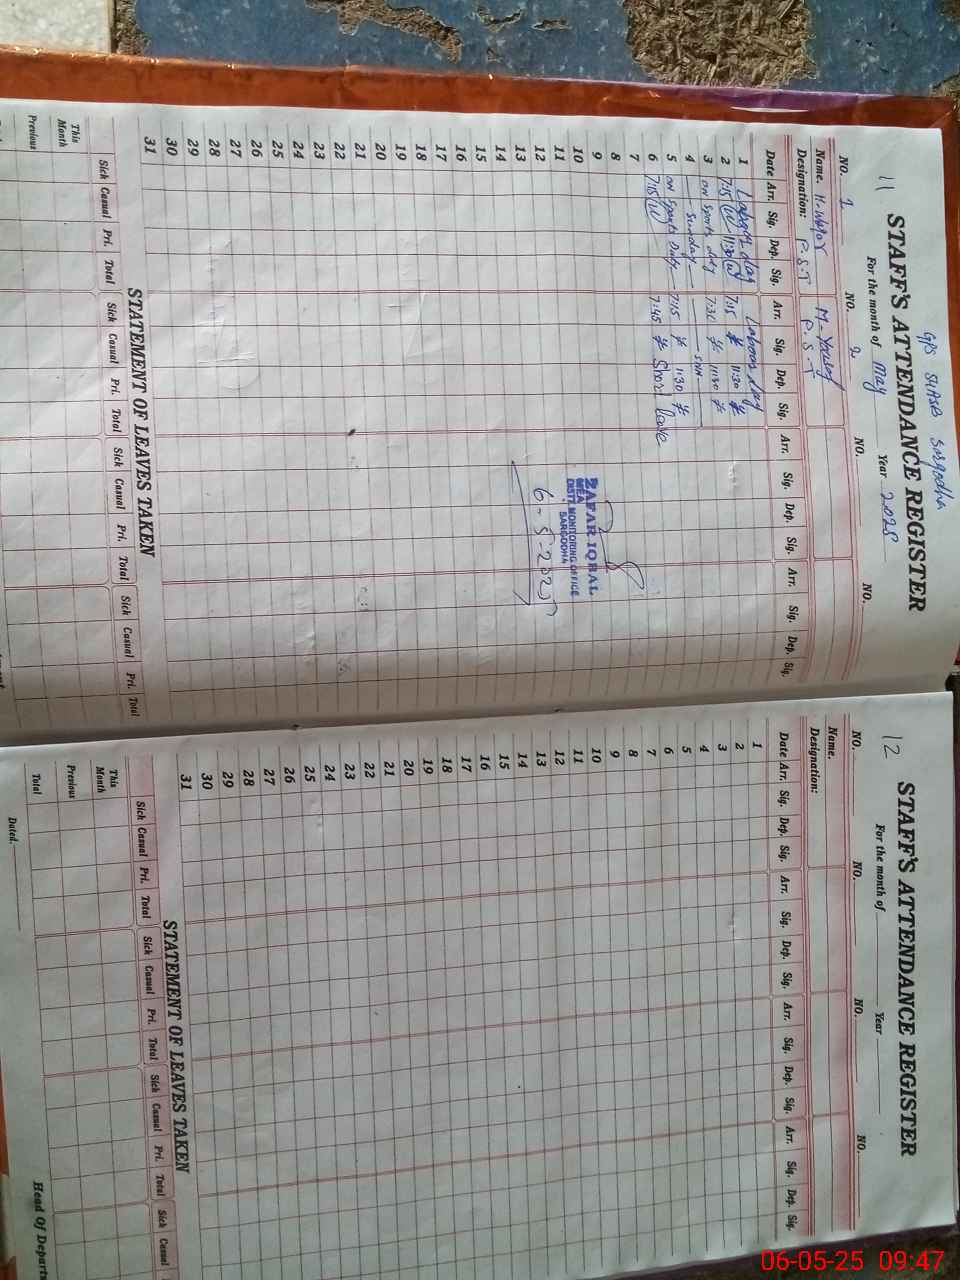 GPS 54ASB Sargodha
11
STAFF'S ATTENDANCE REGISTER
For the month of May Year 2025
NO. 1 NO. 2 NO. NO.
Name. M-Yousaf
Designation: P.S.T P.S.T
Date Arr. Sig. Dep. Sig. Arr. Sig. Dep. Sig. Arr. Sig. Dep. Sig. Arr. Sig. Dep. Sig.
1 Labour day Labour day
2 7:15 11:30 7:15 11:30
3 on sports duty 7:31 11:30
4 Sunday SNH
5 on sports Duty 7:15 11:30
6 7:15 7:45 Short leave
7
8
9
10
11
12
13
14
15
16
17
18
19
20
21
22
23
24
25
26
27
28
29
30
31
ZAFAR IQBAL
MEA
DISTT. MONITORING OFFICE
SARGODHA
6-5-2025
STATEMENT OF LEAVES TAKEN
Sick Casual Pri. Total Sick Casual Pri. Total Sick Casual Pri. Total Sick Casual Pri. Total
This Month
Previous
12
STAFF'S ATTENDANCE REGISTER
For the month of Year
NO. NO. NO. NO.
Name.
Designation:
Date Arr. Sig. Dep. Sig. Arr. Sig. Dep. Sig. Arr. Sig. Dep. Sig. Arr. Sig. Dep. Sig.
1
2
3
4
5
6
7
8
9
10
11
12
13
14
15
16
17
18
19
20
21
22
23
24
25
26
27
28
29
30
31
STATEMENT OF LEAVES TAKEN
Sick Casual Pri. Total Sick Casual Pri. Total Sick Casual Pri. Total Sick Casual
This Month
Previous
Total
Dated.
Head Of Depart
06-05-25 09:47